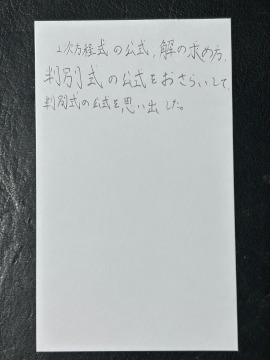 2次方程式の公式,解の求め方,
判別式の公式をおさらいして,
判別式の公式を思い出した。